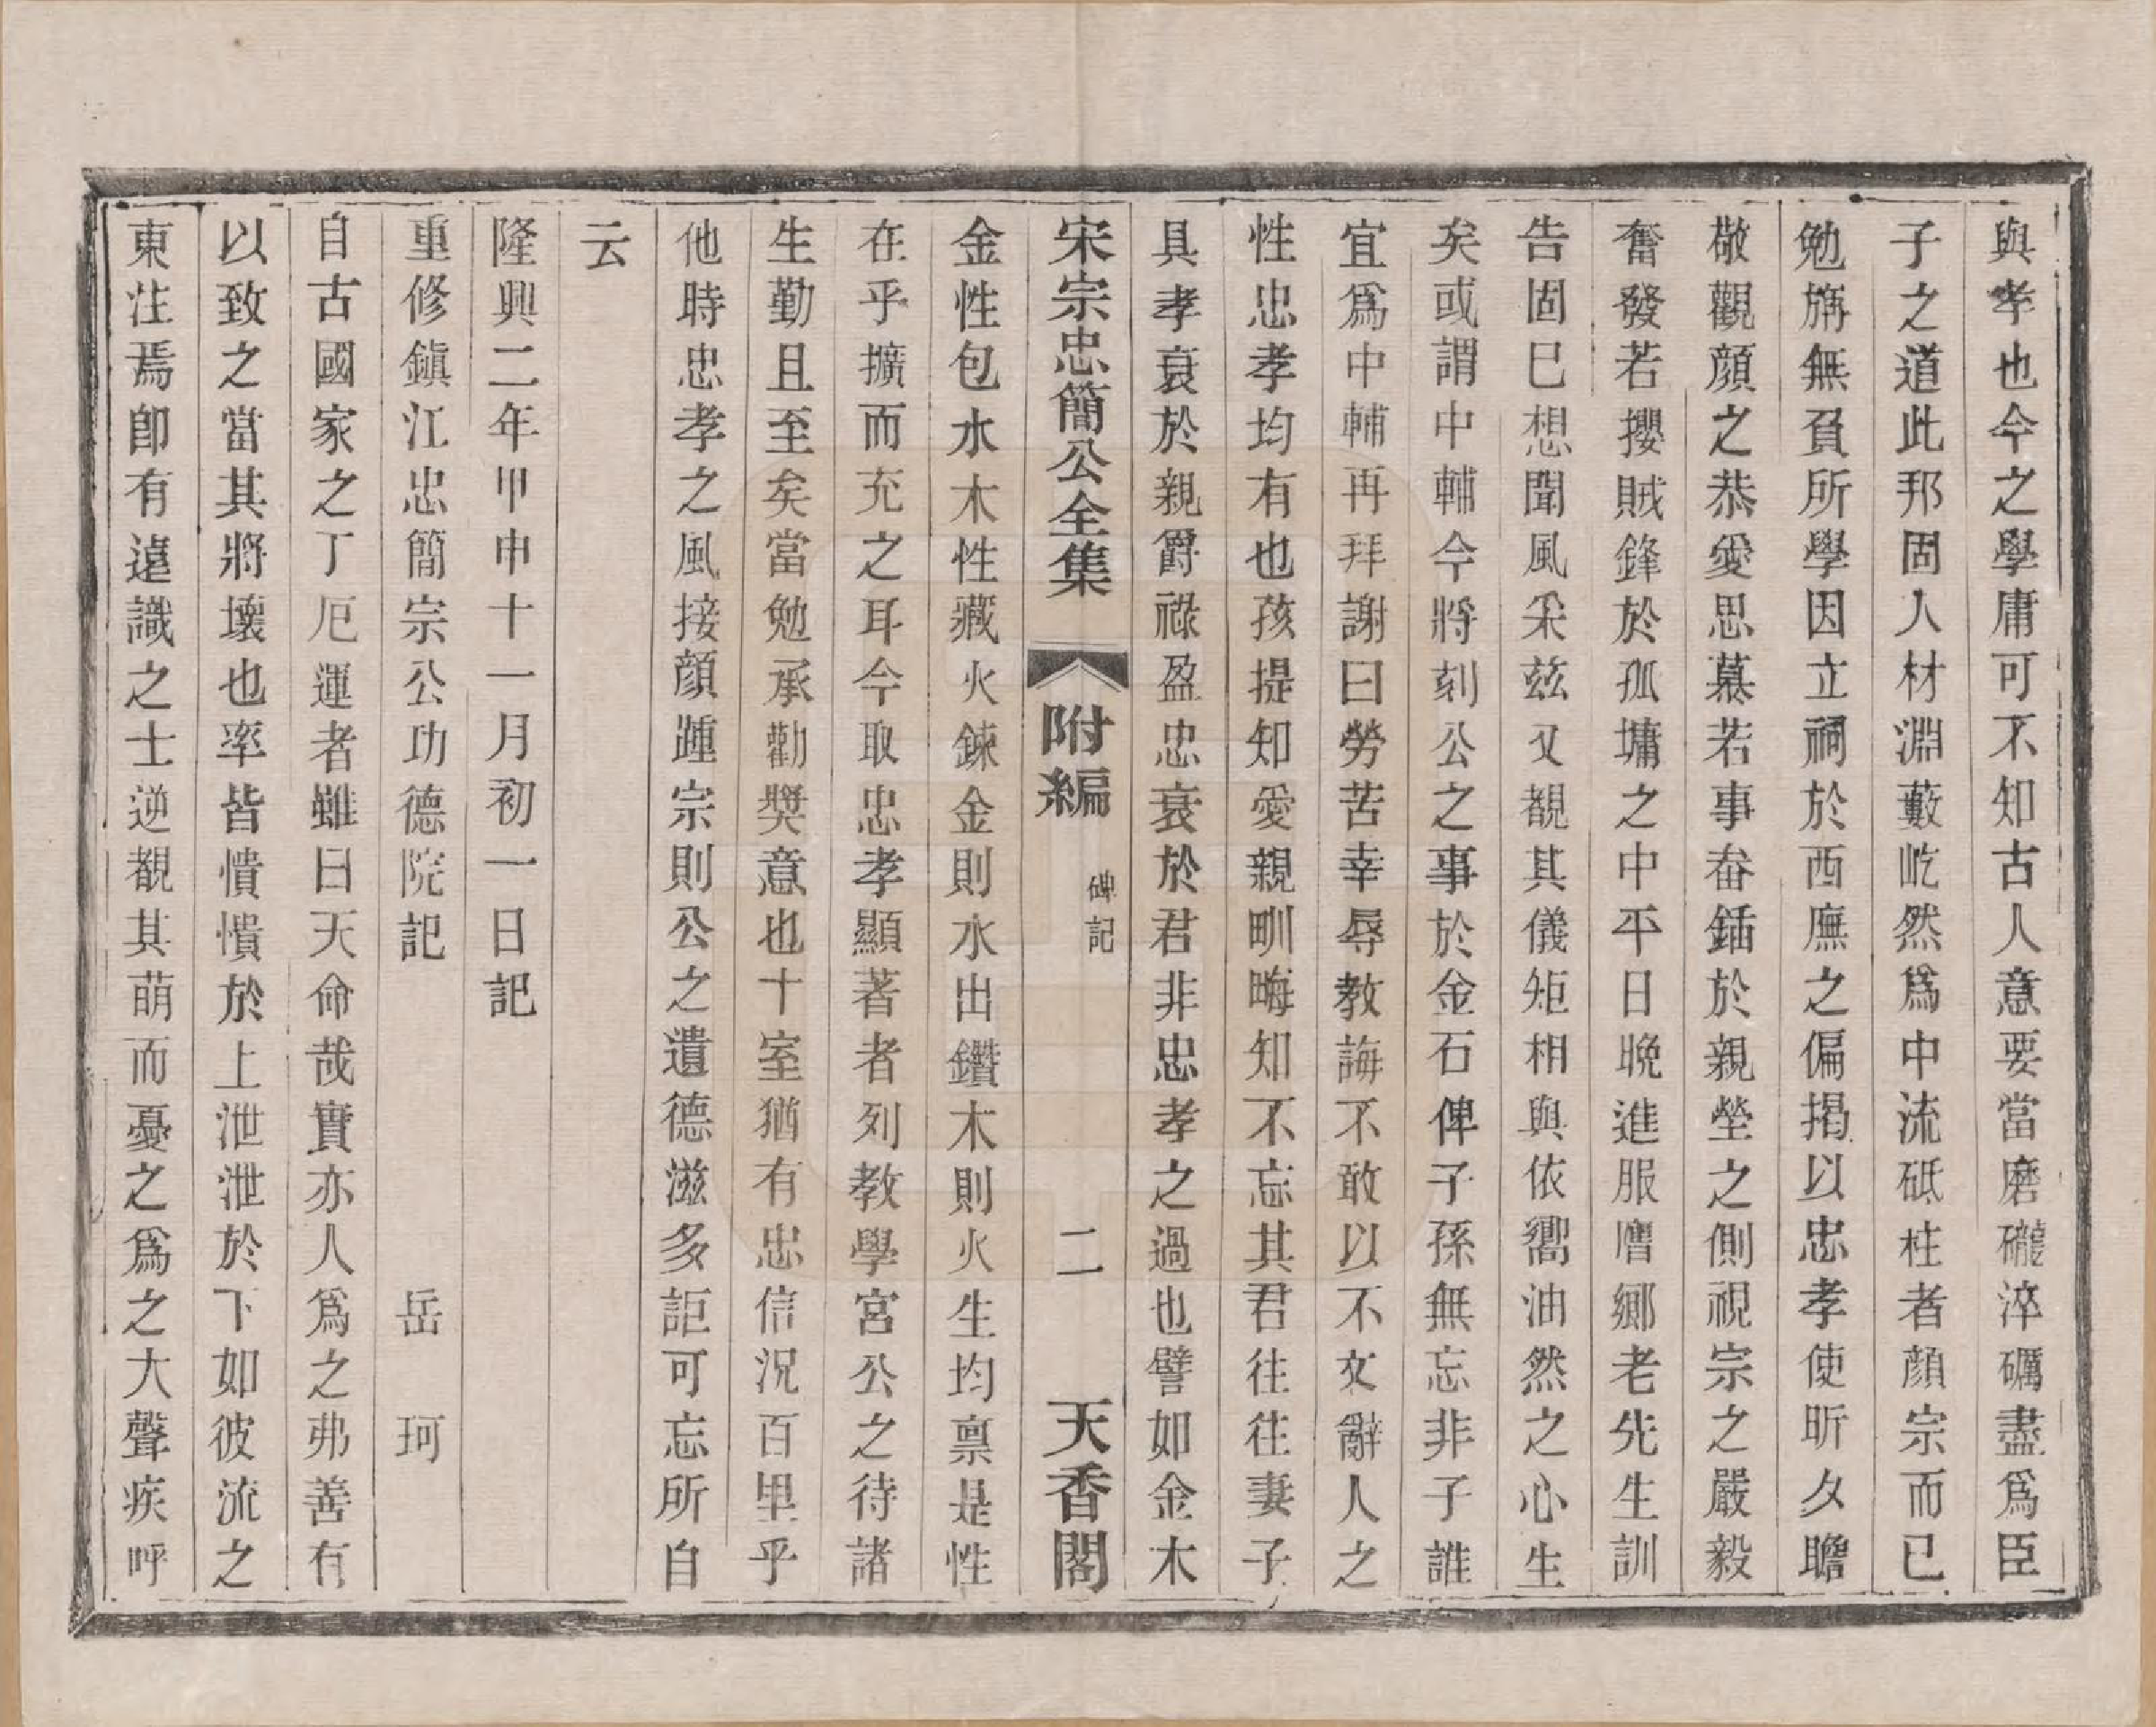 與孝也今之學庸可不知古人意要當磨礲淬礪盡爲臣
子之道此邦固人材淵藪屹然爲中流砥柱者顏宗而已
勉旃無負所學因立祠於西廡之偏揭以忠孝使昕夕瞻
敬觀顏之恭愛思慕若事畚鍤於親塋之側視宗之嚴毅
奮發若攖賊鋒於孤墉之中平日晚進服膺鄉老先生訓
告固已想聞風采茲又覩其儀矩相與依嚮油然之心生
矣或謂中輔今將刻公之事於金石俾子孫無忘非子誰
宜爲中輔再拜謝曰勞苦幸辱教誨不敢以不文辭人之
性忠孝均有也孩提知愛親甽畮知不忘其君往往妻子
具孝衰於親爵祿盈忠衰於君非忠孝之過也譬如金木
宋宗忠簡公全集 附編 碑記 二 天香閣
金性包水木性藏火鍊金則水出鑽木則火生均禀是性
在乎擴而充之耳今取忠孝顯著者列教學宮公之待諸
生勤且至矣當勉承勸獎意也十室猶有忠信況百里乎
他時忠孝之風接顏踵宗則公之遺德滋多詎可忘所自
云
隆興二年甲申十一月初一日記
重修鎮江忠簡宗公功德院記 岳珂
自古國家之丁厄運者雖曰天命哉實亦人爲之弗善有
以致之當其將壞也率皆憒憒於上泄泄於下如彼流之
東注焉卽有遠識之士逆覩其萌而憂之爲之大聲疾呼